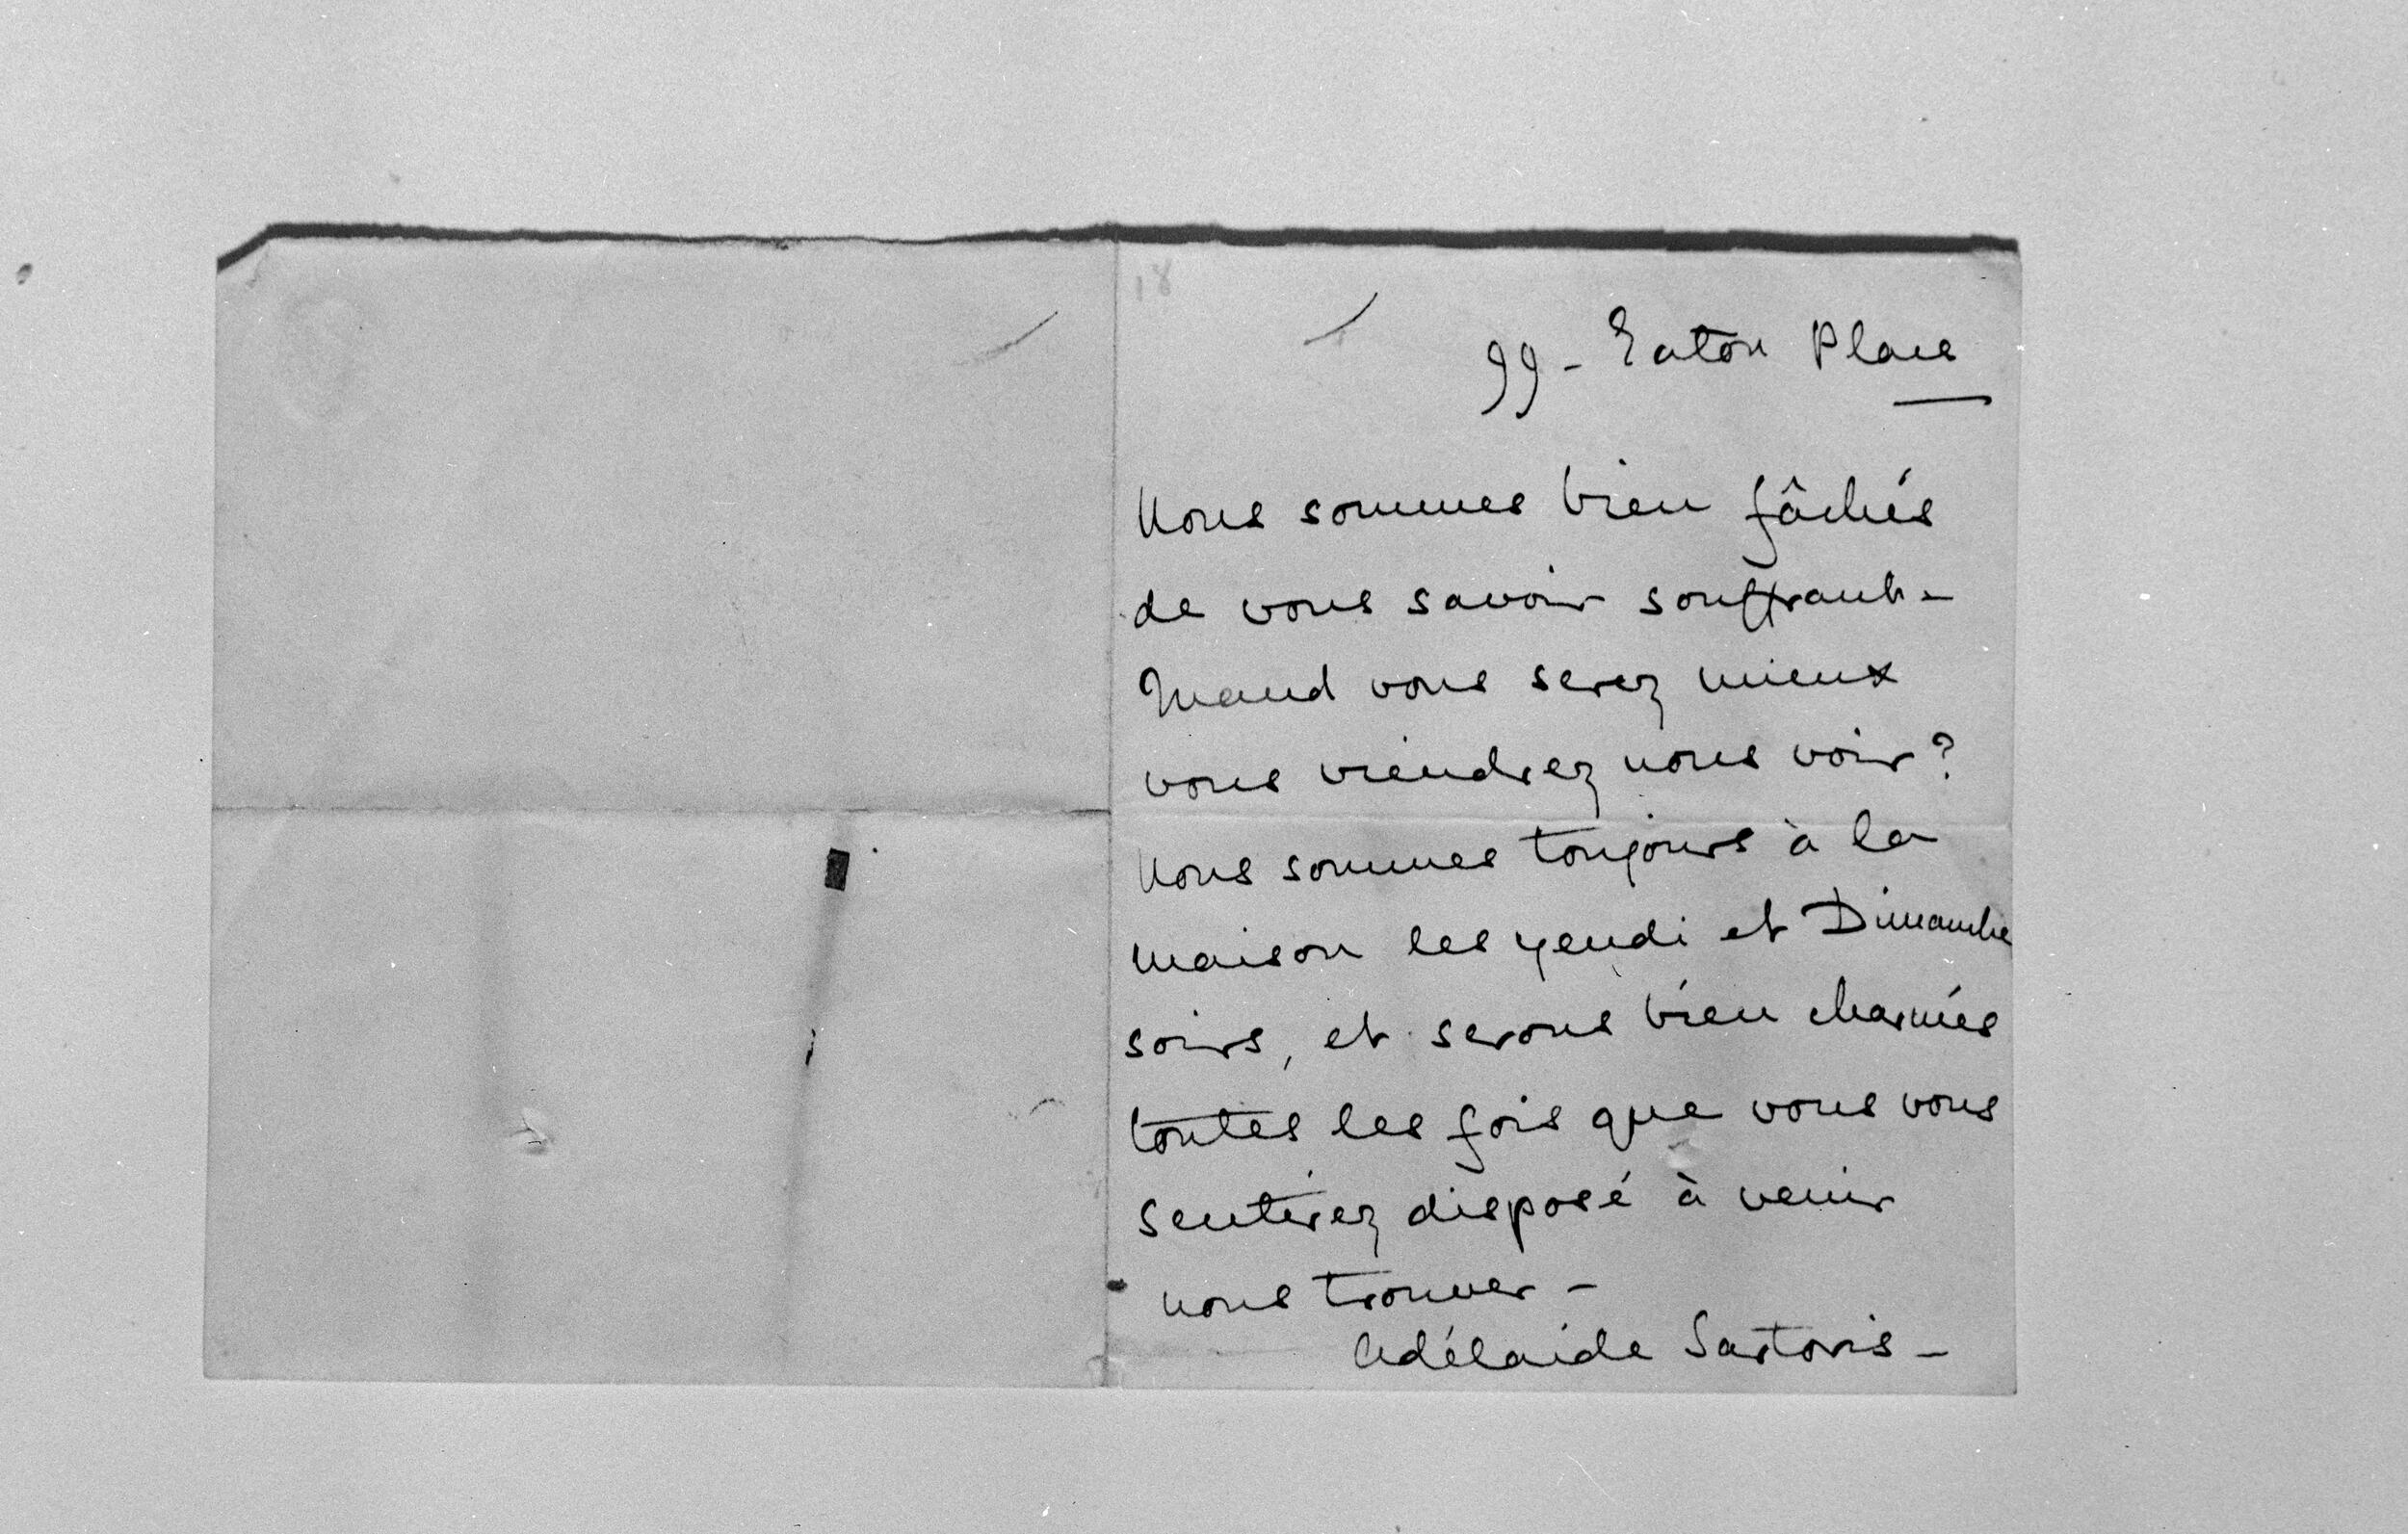 18
99 - Eaton Place
Nous sommes bien fâchés
de vous savoir souffrant -
Quand vous serez mieux
vous viendrez nous voir?
Nous sommes toujours à la
maison les yeudi et Dimanche
soirs, et serons bien charmés
toutes les fois que vous vous
sentirez disposé à venir
nous trouver -
Adélaide Sartoris -